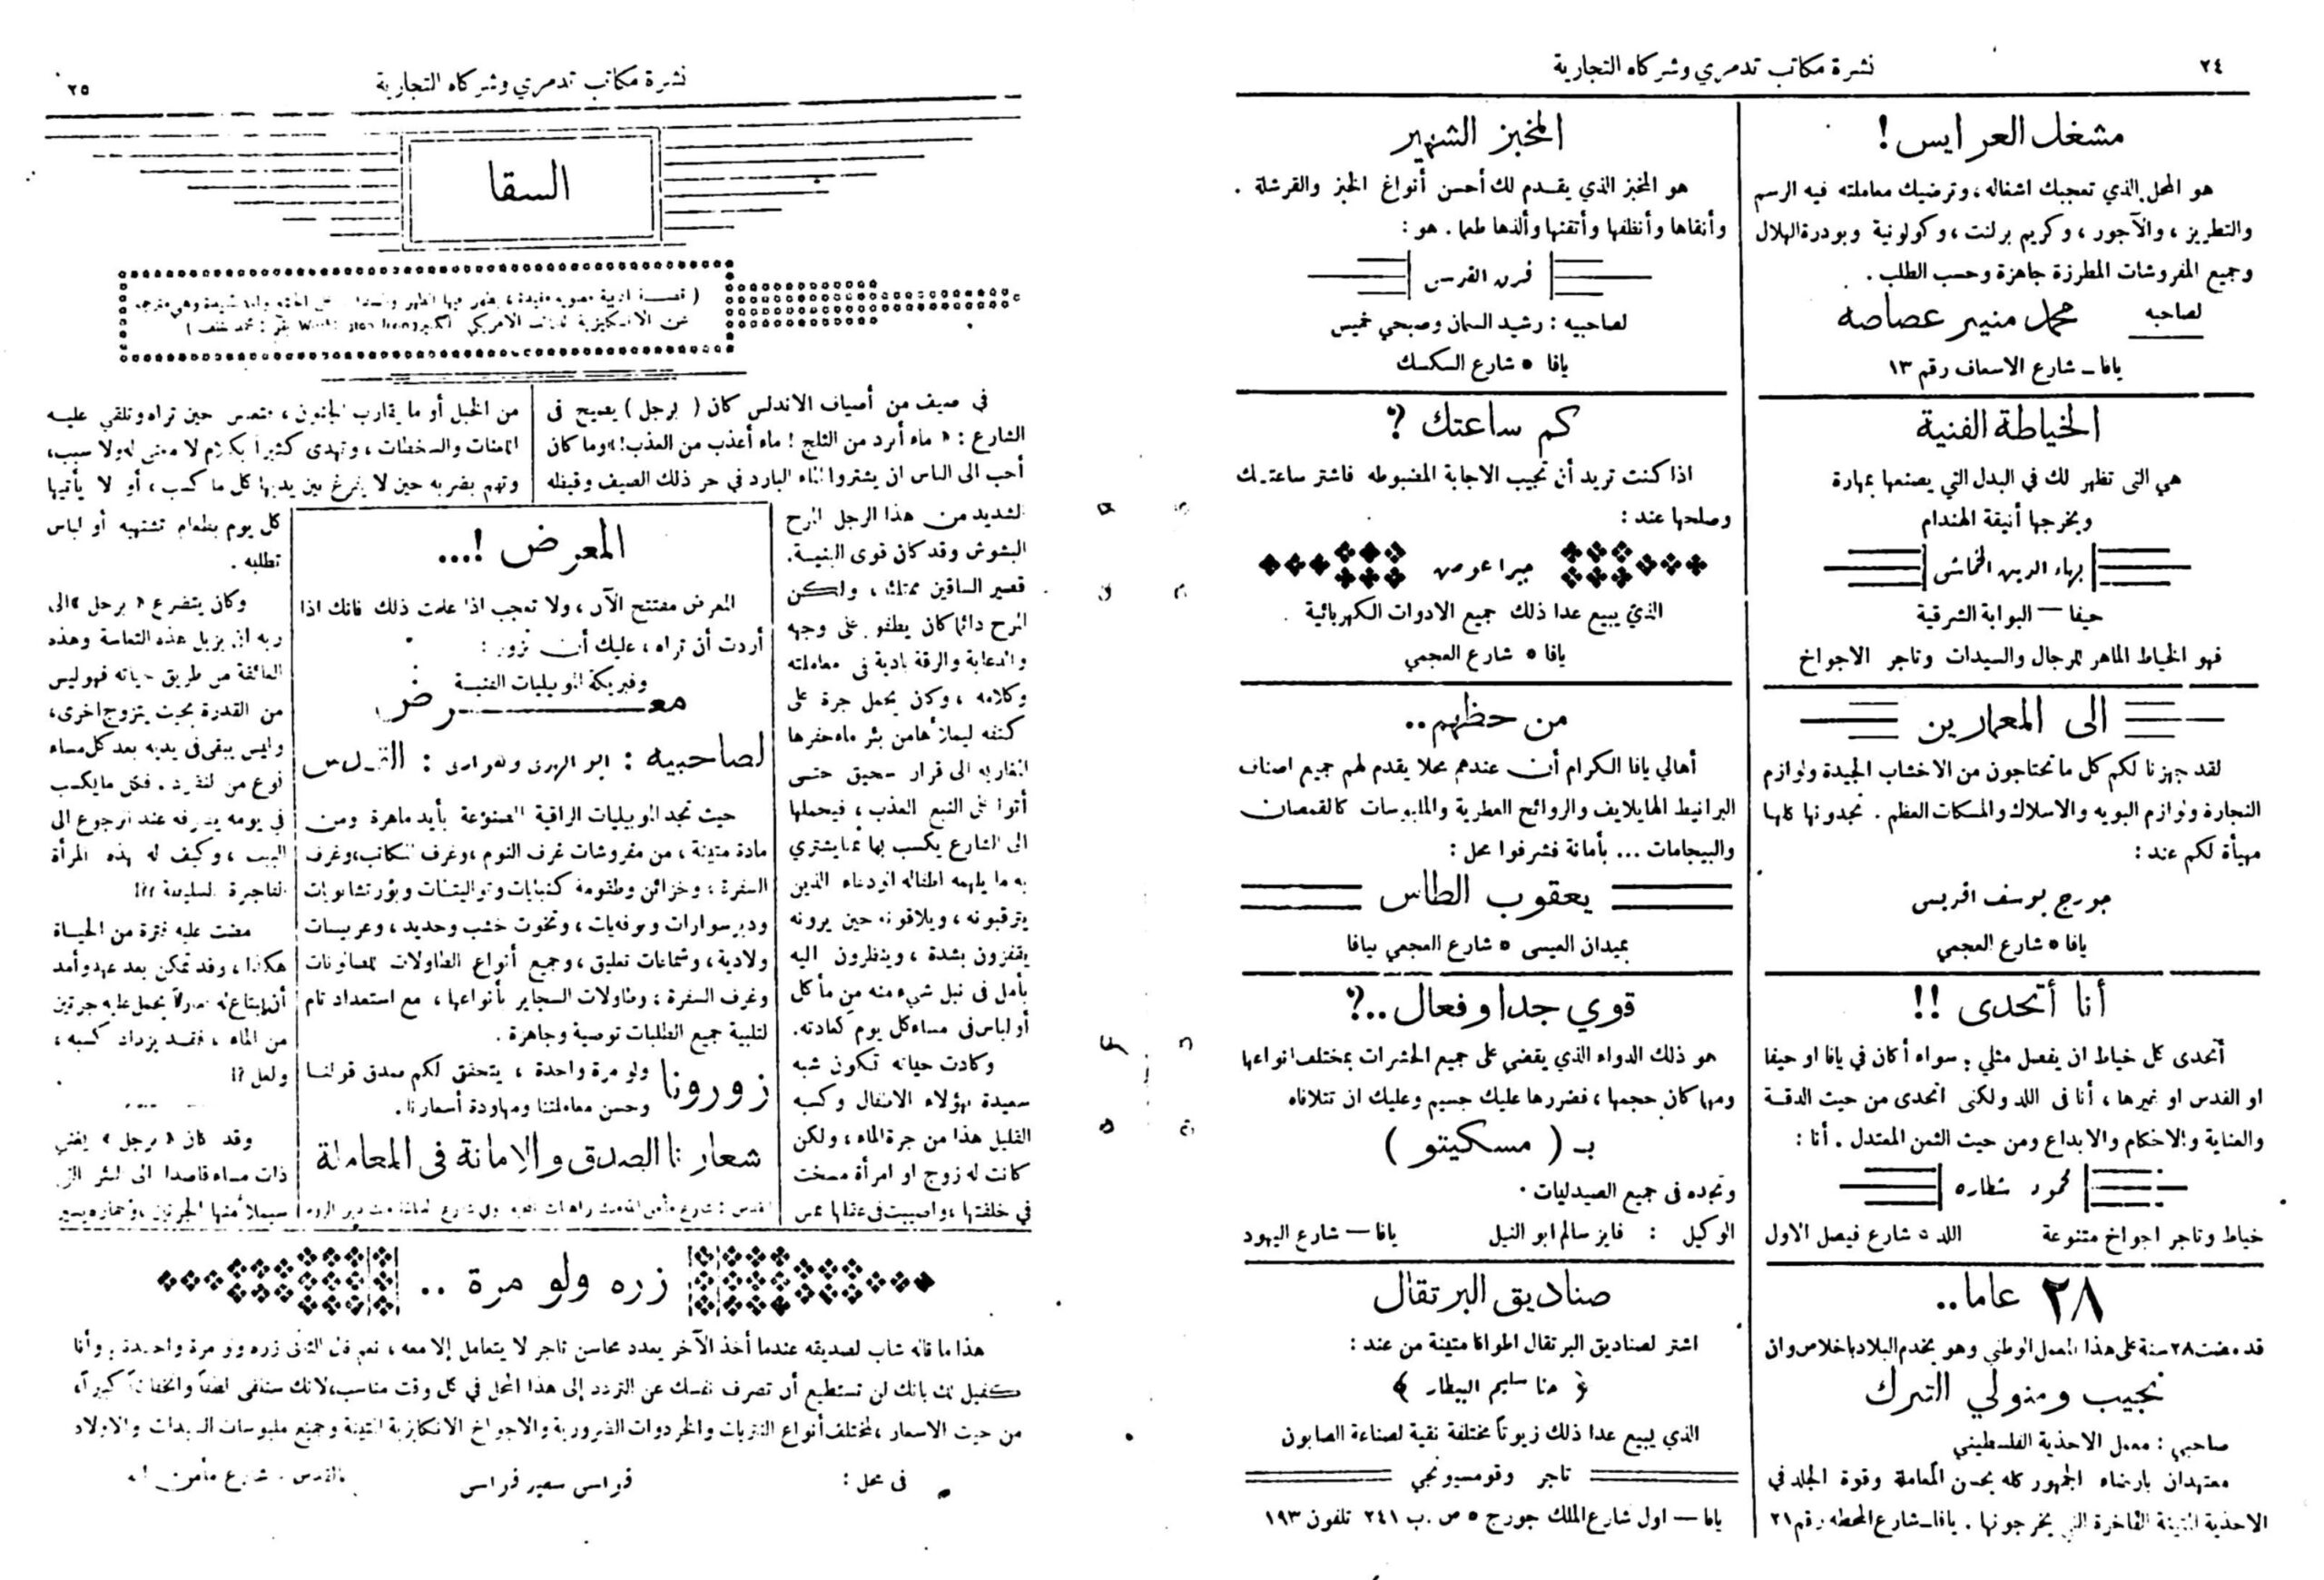 ٢٤
نشرة مكاتب تدمري وشركاه التجارية
مشغل العرايس !
هو المحل الذي تعجبك اشغاله ، وترضيك معاملته فيه الرسم
والتطريز ، والآجور ، وكريم برلنت ، وكولونية وبودرة الهلال
وجميع المفروشات المطرزة جاهزة وحسب الطلب .
لصاحبه محمد منير عصاصه
يافا ـ شارع الاسعاف رقم ١٣
الخياطة الفنية
هي التى تظهر لك في البدل التي يصنعها بمهارة
ويخرجها أنيقة الهندام
بهاء الدين الخماشى
حيفا — البوابة الشرقية
فهو الخياط الماهر للرجال والسيدات وتاجر الاجواخ
الى المعمارين
لقد جهزنا لكم كل ما تحتاجون من الاخشاب الجيدة ولوازم
النجارة ولوازم البويه والاسلاك والمسكات العظم . تجدونها كلها
مهيأة لكم عند :
جورج يوسف اقريس
يافا ٥ شارع العجمي
أنا أتحدى !!
أتحدى كل خياط ان يفعل مثلي ; سواء أكان في يافا او حيفا
او القدس او غيرها ، أنا فى اللد ولكنى اتحدى من حيث الدقة
والعناية والاحكام والابداع ومن حيث الثمن المعتدل . أنا :
محمود شطاره
خياط وتاجر اجواخ متنوعة اللد ٥ شارع فيصل الاول
٢٨ عاما ..
قد مضت ٢٨ سنة على هذا المعمل الوطني وهو يخدم البلاد باخلاص وان
نجيب ومتولي الترك
صاحبي : معمل الاحذية الفلسطيني
معتهدان بارضاء الجمهور كله بحسن المعاملة وقوة الجلد في
الاحذية المتينة الفاخرة التي يخرجونها . يافا ـ شارع المحطه رقم ٢١
المخبز الشهير
هو المخبز الذي يقدم لك أحسن أنواع الخبز والقرشلة .
وأنقاها وأنظفها وأتقنها وألذها طعما . هو :
فرن القرس
لصاحبيه : رشيد السمان وصبحي خميس
يافا ٥ شارع السكسك
كم ساعتك ؟
اذا كنت تريد أن تجيب الاجابة المضبوطه فاشتر ساعتك
وصلحها عند :
جبرا عوض
الذي يبيع عدا ذلك جميع الادوات الكهربائية .
يافا ٥ شارع العجمي
من حظهم ..
أهالي يافا الكرام أن عندهم محلا يقدم لهم جميع اصناف
البرانيط الهايلايف والروائح العطرية والملبوسات كالقمصان
والبيجامات ... بأمانة فشرفوا محل :
يعقوب الطاس
بميدان العيسى ٥ شارع العجمي بيافا
قوي جدا وفعال ..؟
هو ذلك الدواء الذي يقضي على جميع الحشرات بمختلف انواعها
ومهما كان حجمها ، فضررها عليك جسيم وعليك ان تتلافاه
بـ ( مسكيتو )
وتجده فى جميع الصيدليات .
الوكيل : فايز سالم ابو النيل يافا — شارع اليهود
صناديق البرتقال
اشتر لصناديق البرتقال اطواقا متينة من عند :
حنا سليم البيطار
الذي يبيع عدا ذلك زيوتاً مختلفة نقية لصناعة الصابون
تاجر وقومسيونجي
يافا — اول شارع الملك جورج ٥ ص . ب ٢٤١ تلفون ١٩٣
نشرة مكاتب تدمري وشركاه التجارية
٢٥
السقا
في صيف من أصياف الاندلس كان ( برجل ) يصيح فى
الشارع : « ماء أبرد من الثلج ! ماء أعذب من العذب ! » وما كان
أحب الى الناس ان يشتروا الماء البارد في حر ذلك الصيف وقيظه
الشديد من هذا الرجل المرح
البشوش وقد كان قوى البنية .
قصير الساقين ممتلئا ، ولكن
المرح دائما كان يطفو على وجهه
والدعابة والرقة بادية فى معاملته
وكلامه ، وكان يحمل جرة على
كتفه ليملأها من بئر ماء حفرها
المغاربه الى قرار سحيق حتى
أتوا على النبع العذب ، فيحملها
الى الشارع يكسب بها ما يشتري
به ما يلهمه اطفاله الودعاء الذين
يترقبونه ، ويلاقونه حين يرونه
يقفزون بشدة ، وينظرون اليه
بأمل فى نيل شيء منه من مأكل
أو لباس فى مساء كل يوم كعادته .
وكادت حياته تكون شبه
سعيدة بهؤلاء الاطفال وكسبه
القليل هذا من جرة الماء ، ولكن
كانت له زوج او امرأة مسخت
في خلقتها ، واصيبت فى عقلها بمس
من الخبل أو ما يقارب الجنون ، حين تراه وتلقي عليه
اللعنات والسخطات ، وتهذى كثيراً بكلام لا معنى له ولا سبب ،
وتهم بضربه حين لا يفرغ بين يديها كل ما كسب ، أو لا يأتيها
كل يوم بطعام تشتهيه أو لباس
تطلبه .
وكان يتضرع « برجل » الى
ربه ان يزيل عنه هذه التعاسة وهذه
العائقة من طريق حياته فهو ليس
من القدرة بحيث يتزوج اخرى ،
وليس يبقى فى يديه بعد كل مساء
نوع من النقود . فكل ما يكسب
في يومه يصرفه عند الرجوع الى
البيت ، وكيف له بهذه المرأة
الفاجرة السليطة ؟؟!
مضت عليه فترة من الحياة
هكذا ، وقد تمكن بعد عهد وأمد
أن يبتاع له حماراً يحمل عليه جرتين
من الماء ، فقد يزداد كسبه ،
ولعل ؟!
وقد كان « برجل » يغني
ذات مساء قاصدا الى البئر التي
سيملأ منها الجرتين ، وحماره يسير
المعرض !...
المعرض مفتتح الآن ، ولا تعجب اذا علمت ذلك فانك اذا
أردت أن تراه ، عليك أن تزور :
معرض وفبريكة الموبيليات الفنية
لصاحبيه : ابو الهدى وهوارى : القدس
حيث تجد الموبيليات الراقية المصنوعة بأيد ماهرة ومن
مادة متينة ، من مفروشات غرف النوم ، وغرف المكاتب ، وغرف
السفرة ، وخزائن وطقومة كنبايات وتواليتات وبورتشابويات
ودبرسوارات وبوفيهات ، وتخوت خشب وحديد ، وعربيات
ولادية ، وشماعات تعليق ، وجميع أنواع الطاولات للصالونات
وغرف السفرة ، وطاولات السجاير بأنواعها ، مع استعداد تام
لتلبية جميع الطلبات توصية وجاهزة .
زورونا ولو مرة واحدة ، يتحقق لكم صدق قولنا
وحسن معاملتنا ومهاودة أسعارنا .
شعارنا الصدق والامانة فى المعاملة
زره ولو مرة ..
هذا ما قاله شاب لصديقه عندما أخذ الآخر يعدد محاسن تاجر لا يتعامل إلا معه ، نعم قال الثانى زره ولو مرة واحدة ; وأنا
كفيل لك بانك لن تستطيع أن تصرف نفسك عن التردد إلى هذا المحل في كل وقت مناسب ، لانك ستلقى لطفاً وانخفاضاً كبيراً ،
من حيث الاسعار ، لمختلف أنواع النثريات والخردوات الضرورية والاجواخ الانكليزية المتينة وجميع ملبوسات السيدات والاولاد
فى محل : فراس سمير فراس القدس . شارع مأمن الله